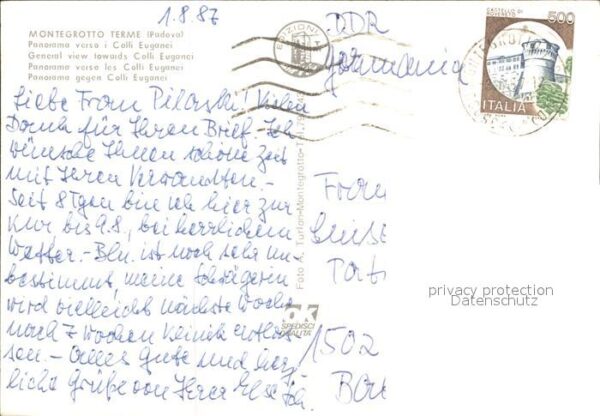 1.8.87
MONTEGROTTO TERME (Padova)
Panorama verso i Colli Euganei
General view towards Colli Euganei
Panorama verso les Colli Euganei
Panorama gegen Colli Euganei
EDIZIONI
DDR
Germania
CASTELLO DI ROVERETO
500
ITALIA
Liebe Frau Pilaski! Vielen
Dank für Ihren Brief. Ich
wünsche Ihnen schöne Zeit
mit Ihren Verwandten.-
Seit 8 Tgen bin ich hier zur
Kur bis 9.8., bei herrlichem
Wetter.- Bln. ist noch sehr un-
bestimmt, meine Schwägerin
wird vielleicht nächste Woche
nach 7 Wochen Klinik entlas-
sen.- Alles Gute und herz-
liche Grüße von Ihrer Else
Foto A. Turlon-Montegrotto
OK
SPEDISCI
QUALITÀ
Frau
1502
privacy protection
Datenschutz